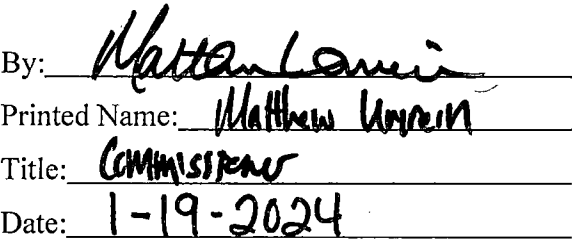 By:
Printed Name: Matthew Unrein
Title: Commissioner
Date: 1-19-2024